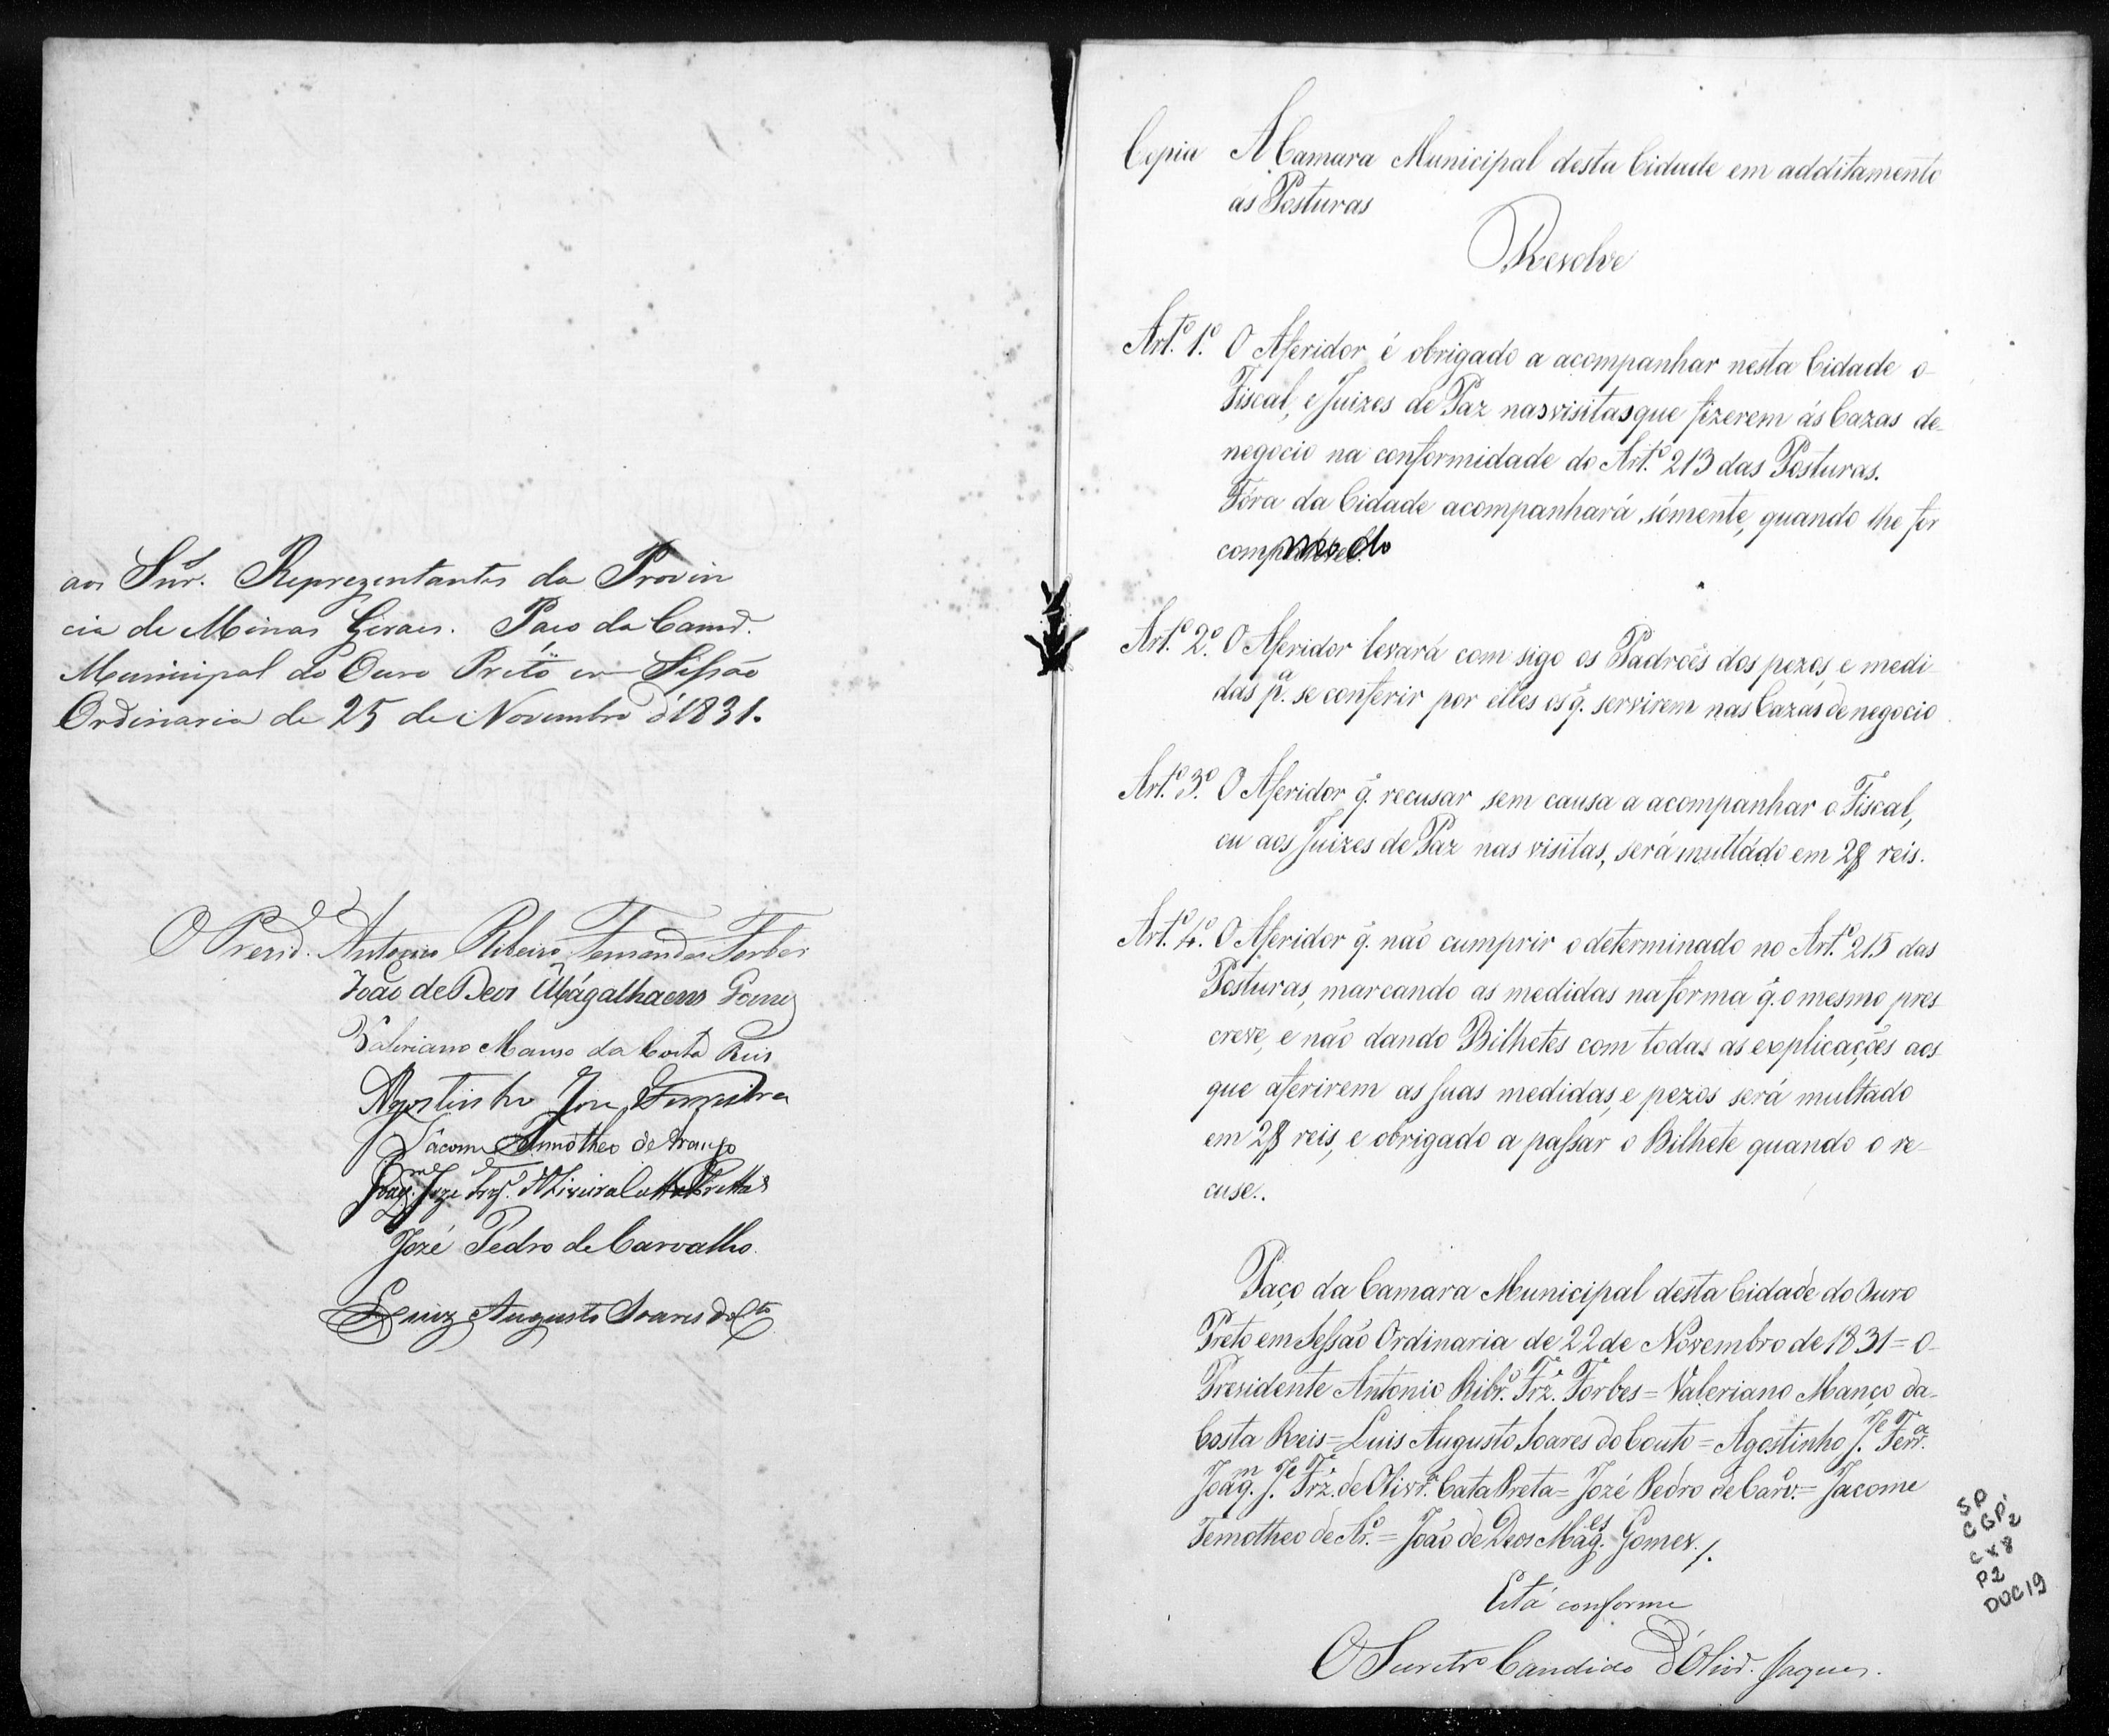 aos Snr.ˢ Reprezentantes da Provin
cia de Minas Geraes. Paço da Camr.ª
Municipal do Ouro Preto em Seſsão
Ordinaria de 25 de Novembro d'1831.
O Prezid.ᵉ Antonio Ribeiro Fernandes Forbes
João de Deos Magalhaens Gomes
Valeriano Manso da Costa Reis
Agostinho Joze Ferreira
Jacome Timotheo de Araujo
Joaq.ᵐ Joze Frz.ˢ Oliveira Catta Pretta
Jozé Pedro de Carvalho
Luiz Augusto Soares do C.ᵗᵒ
Copia A Camara Municipal desta Cidade em additamento
ás Posturas
Resolve
Art.º 1.º O Aferidor é obrigado a acompanhar nesta Cidade o
Fiscal, e Juizes de Paz nas visitas que fizerem ás Cazas de
negocio na conformidade do Art.º 213 das Posturas.
Fóra da Cidade acompanhará sómente, quando lhe for
Art.º 2.º O Aferidor levará com sigo os Padroẽs dos pezos, e medi
das p.ª se conferir por elles os q̃. servirem nas Cazas de negocio
Art.º 3.º O Aferidor q̃. recusar sem causa a acompanhar o Fiscal,
ou aos Juizes de Paz nas visitas, será multado em 2$ reis.
Art.º 4.º O Aferidor q̃. não cumprir o determinado no Art.º 215 das
Posturas, marcando as medidas na forma q̃. o mesmo pres
creve, e não dando Bilhetes com todas as explicações aos
que aferirem as suas medidas, e pezos será multado
em 2$ reis, e obrigado a paſsar o Bilhete quando o re-
cuse.
Paço da Camara Municipal desta Cidade do Ouro
Preto em Seſsão Ordinaria de 22 de Novembro de 1831 = O
Presidente Antonio Ribr.º Frz.ˢ Forbes = Valeriano Manço da
Costa Reis = Luis Augusto Soares do Couto = Agostinho J.ᵉ Ferr.ª
Joaq.ᵐ J.ᵉ Frz.ˢ de Olivr.ª Cata Preta = Jozé Pedro de Carv.º = Jacome
Temotheo de Ar.º = João de Deos Mag.ᵉˢ Gomes./.
Está conforme
O Secretr.º Candido d'Oliv.ª Jaques.
SP
CGP2
CX8
P2
DOC19